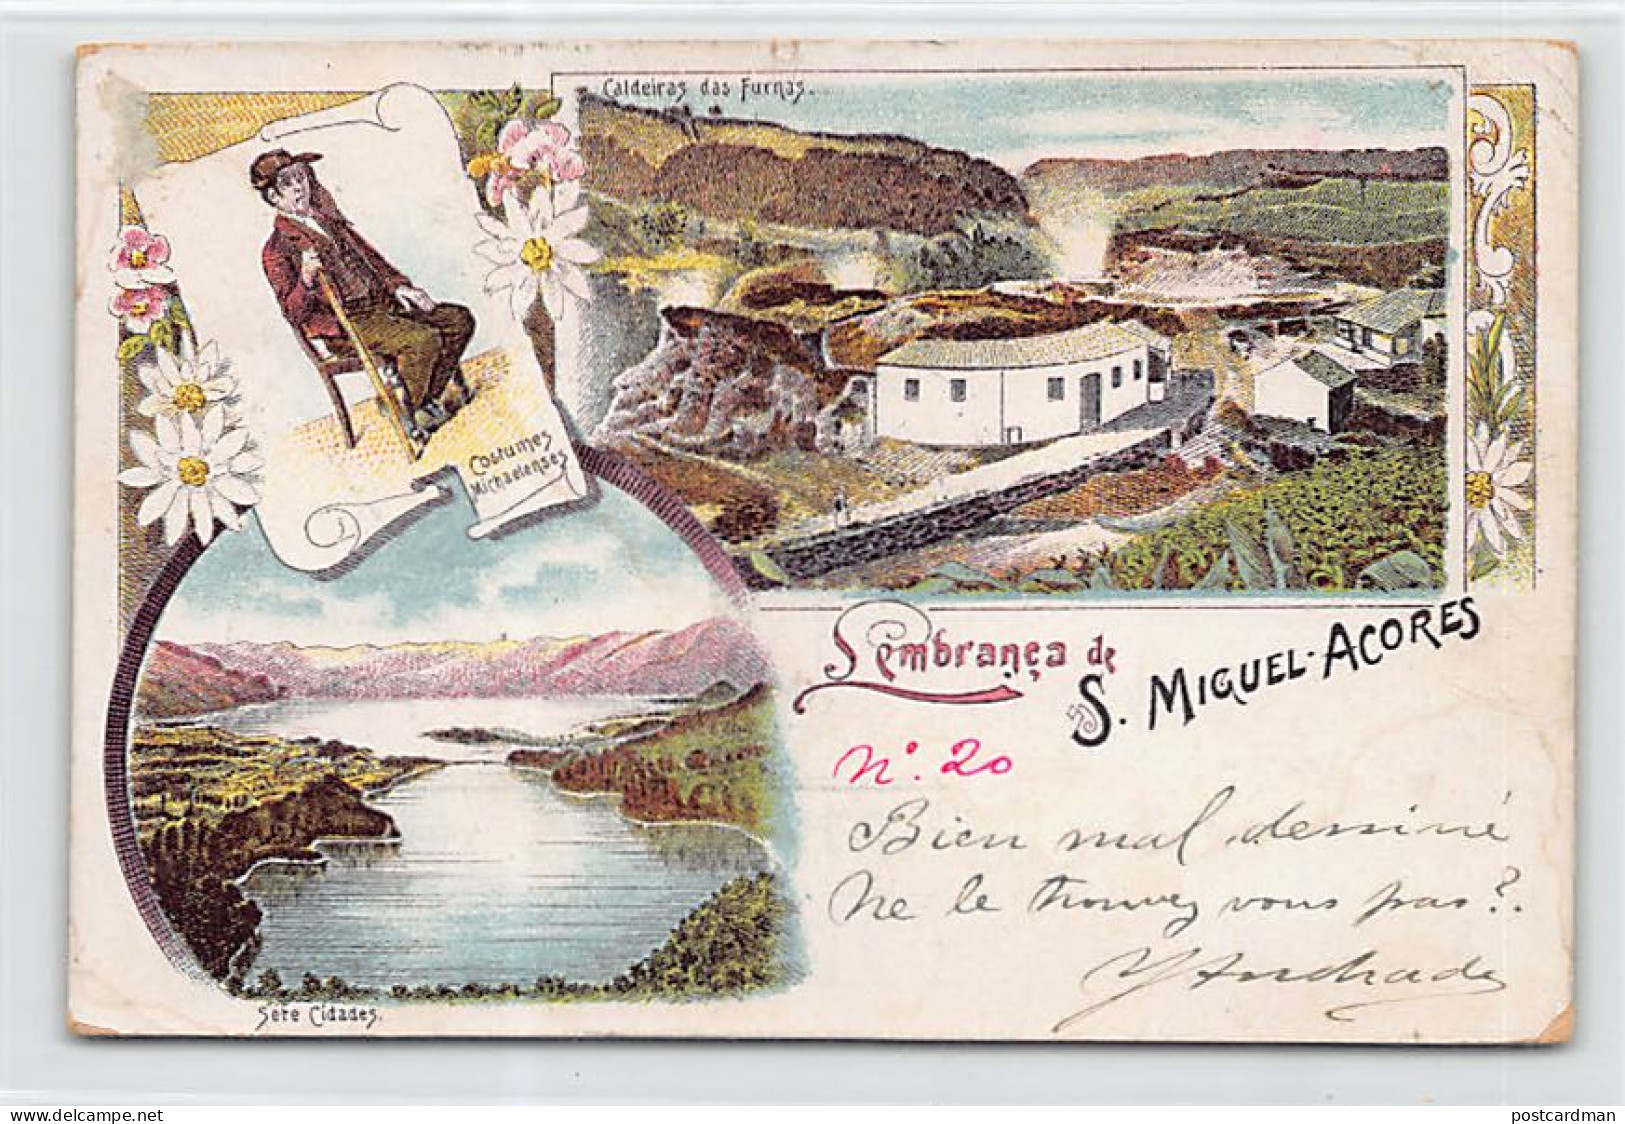 Caldeiras das Furnas.
Costumes
Michaelenses
Lembrança de
S. MIGUEL-AÇORES
Nº. 20
Bien mal dessiné
Ne le trouvez vous pas?.
Andrade
Sete Cidades.
www.delcampe.net
postcardman